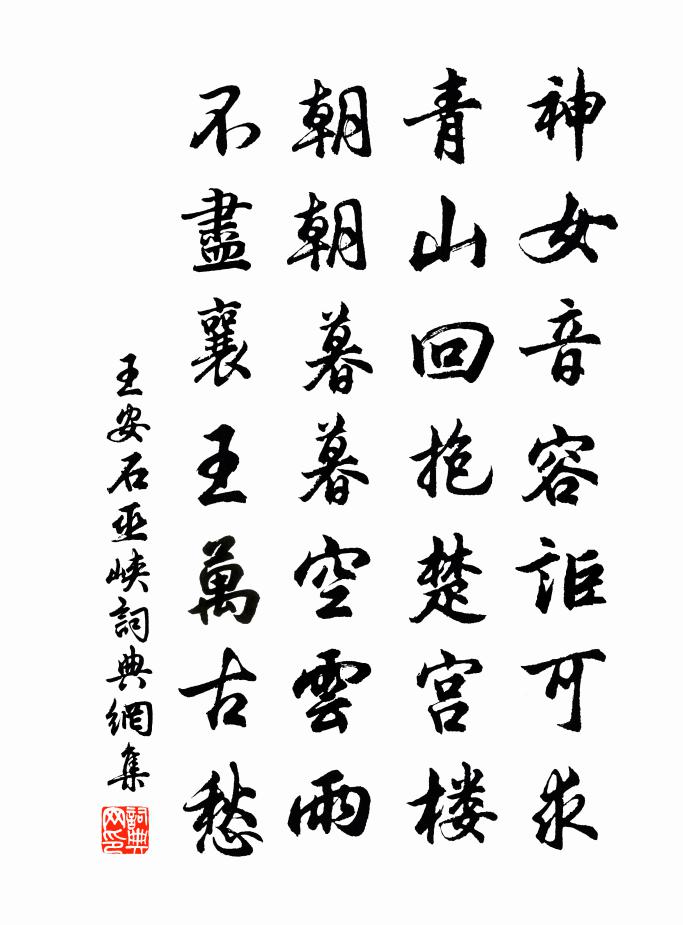 神女音容詎可求
青山回抱楚宮楼
朝朝暮暮空雲雨
不盡襄王萬古愁
王安石巫峡詞典網集
詞典网印